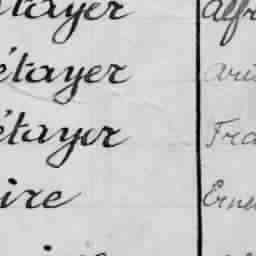 tayer Alfr
étayer
étayer Fra
ire Erne